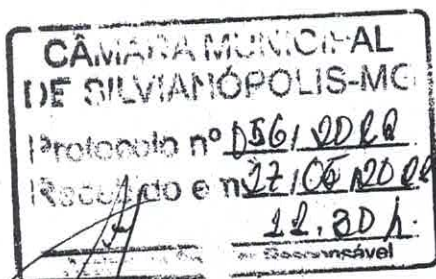 CÂMARA MUNICIPAL
DE SILVIANÓPOLIS-MG
Protocolo nº 056/2022
Recebido em 27/05/2022
11:30 h.
Responsável